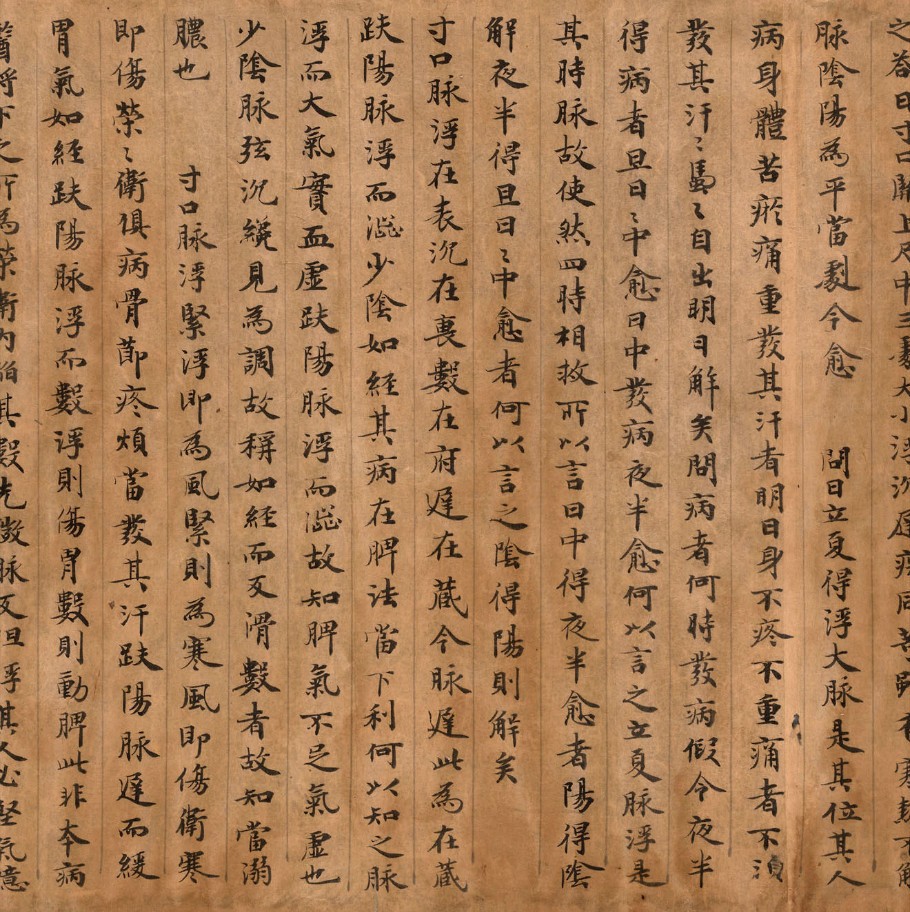 之答曰寸口關上尺中三處大小浮沉遲疾同等雖有寒熱不解
脉陰陽為平當劇今愈　問曰立夏得浮大脉是其位其人
病身體苦疼痛重發其汗者明日身不疼不重痛者不湏
發其汗〻濈〻自出明日解矣問病者何時發病假令夜半
得病者旦日〻中愈日中發病夜半愈何以言之立夏脉浮是
其時脉故使然四時相救所以言日中得夜半愈者陽得陰
解夜半得旦日〻中愈者何以言之陰得陽則解矣
寸口脉浮在表沉在裏數在府遲在蔵今脉遲此為在蔵
趺陽脉浮而澁少陰如經其病在脾法當下利何以知之脉
浮而大氣實血虛趺陽脉浮而澁故知脾氣不足氣虛也
少陰脉弦沉纔見為調故稱如經而反滑數者故知當溺
膿也　寸口脉浮緊浮即為風緊則為寒風即傷衛寒
即傷榮〻衛俱病骨節疼煩當發其汗趺陽脉遲而緩
胃氣如經趺陽脉浮而數浮則傷胃數則動脾此非本病
醫將下之所為榮衛內陷其數先微脉反但浮其人必堅氣噫